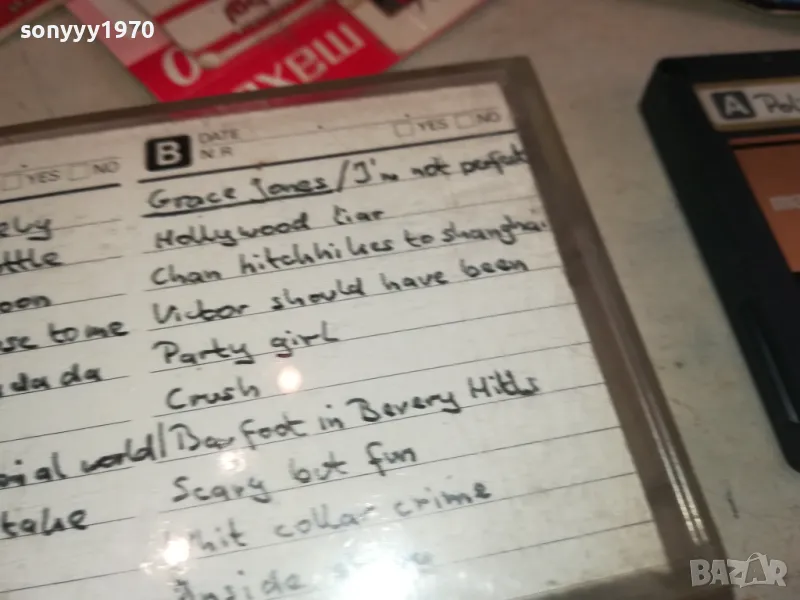 sonyyy1970
maxell
B DATE
N.R
YES NO
YES NO
A Pol
Grace Jones / I'm not perfect
Hollywood liar
Chan hitchhikes to shanghai
Victor should have been
se to me
Party girl
da da
Crush
ial world / Barfoot in Bevery Hills
Scary but fun
take
hit collar crime
Inside
BAZAR